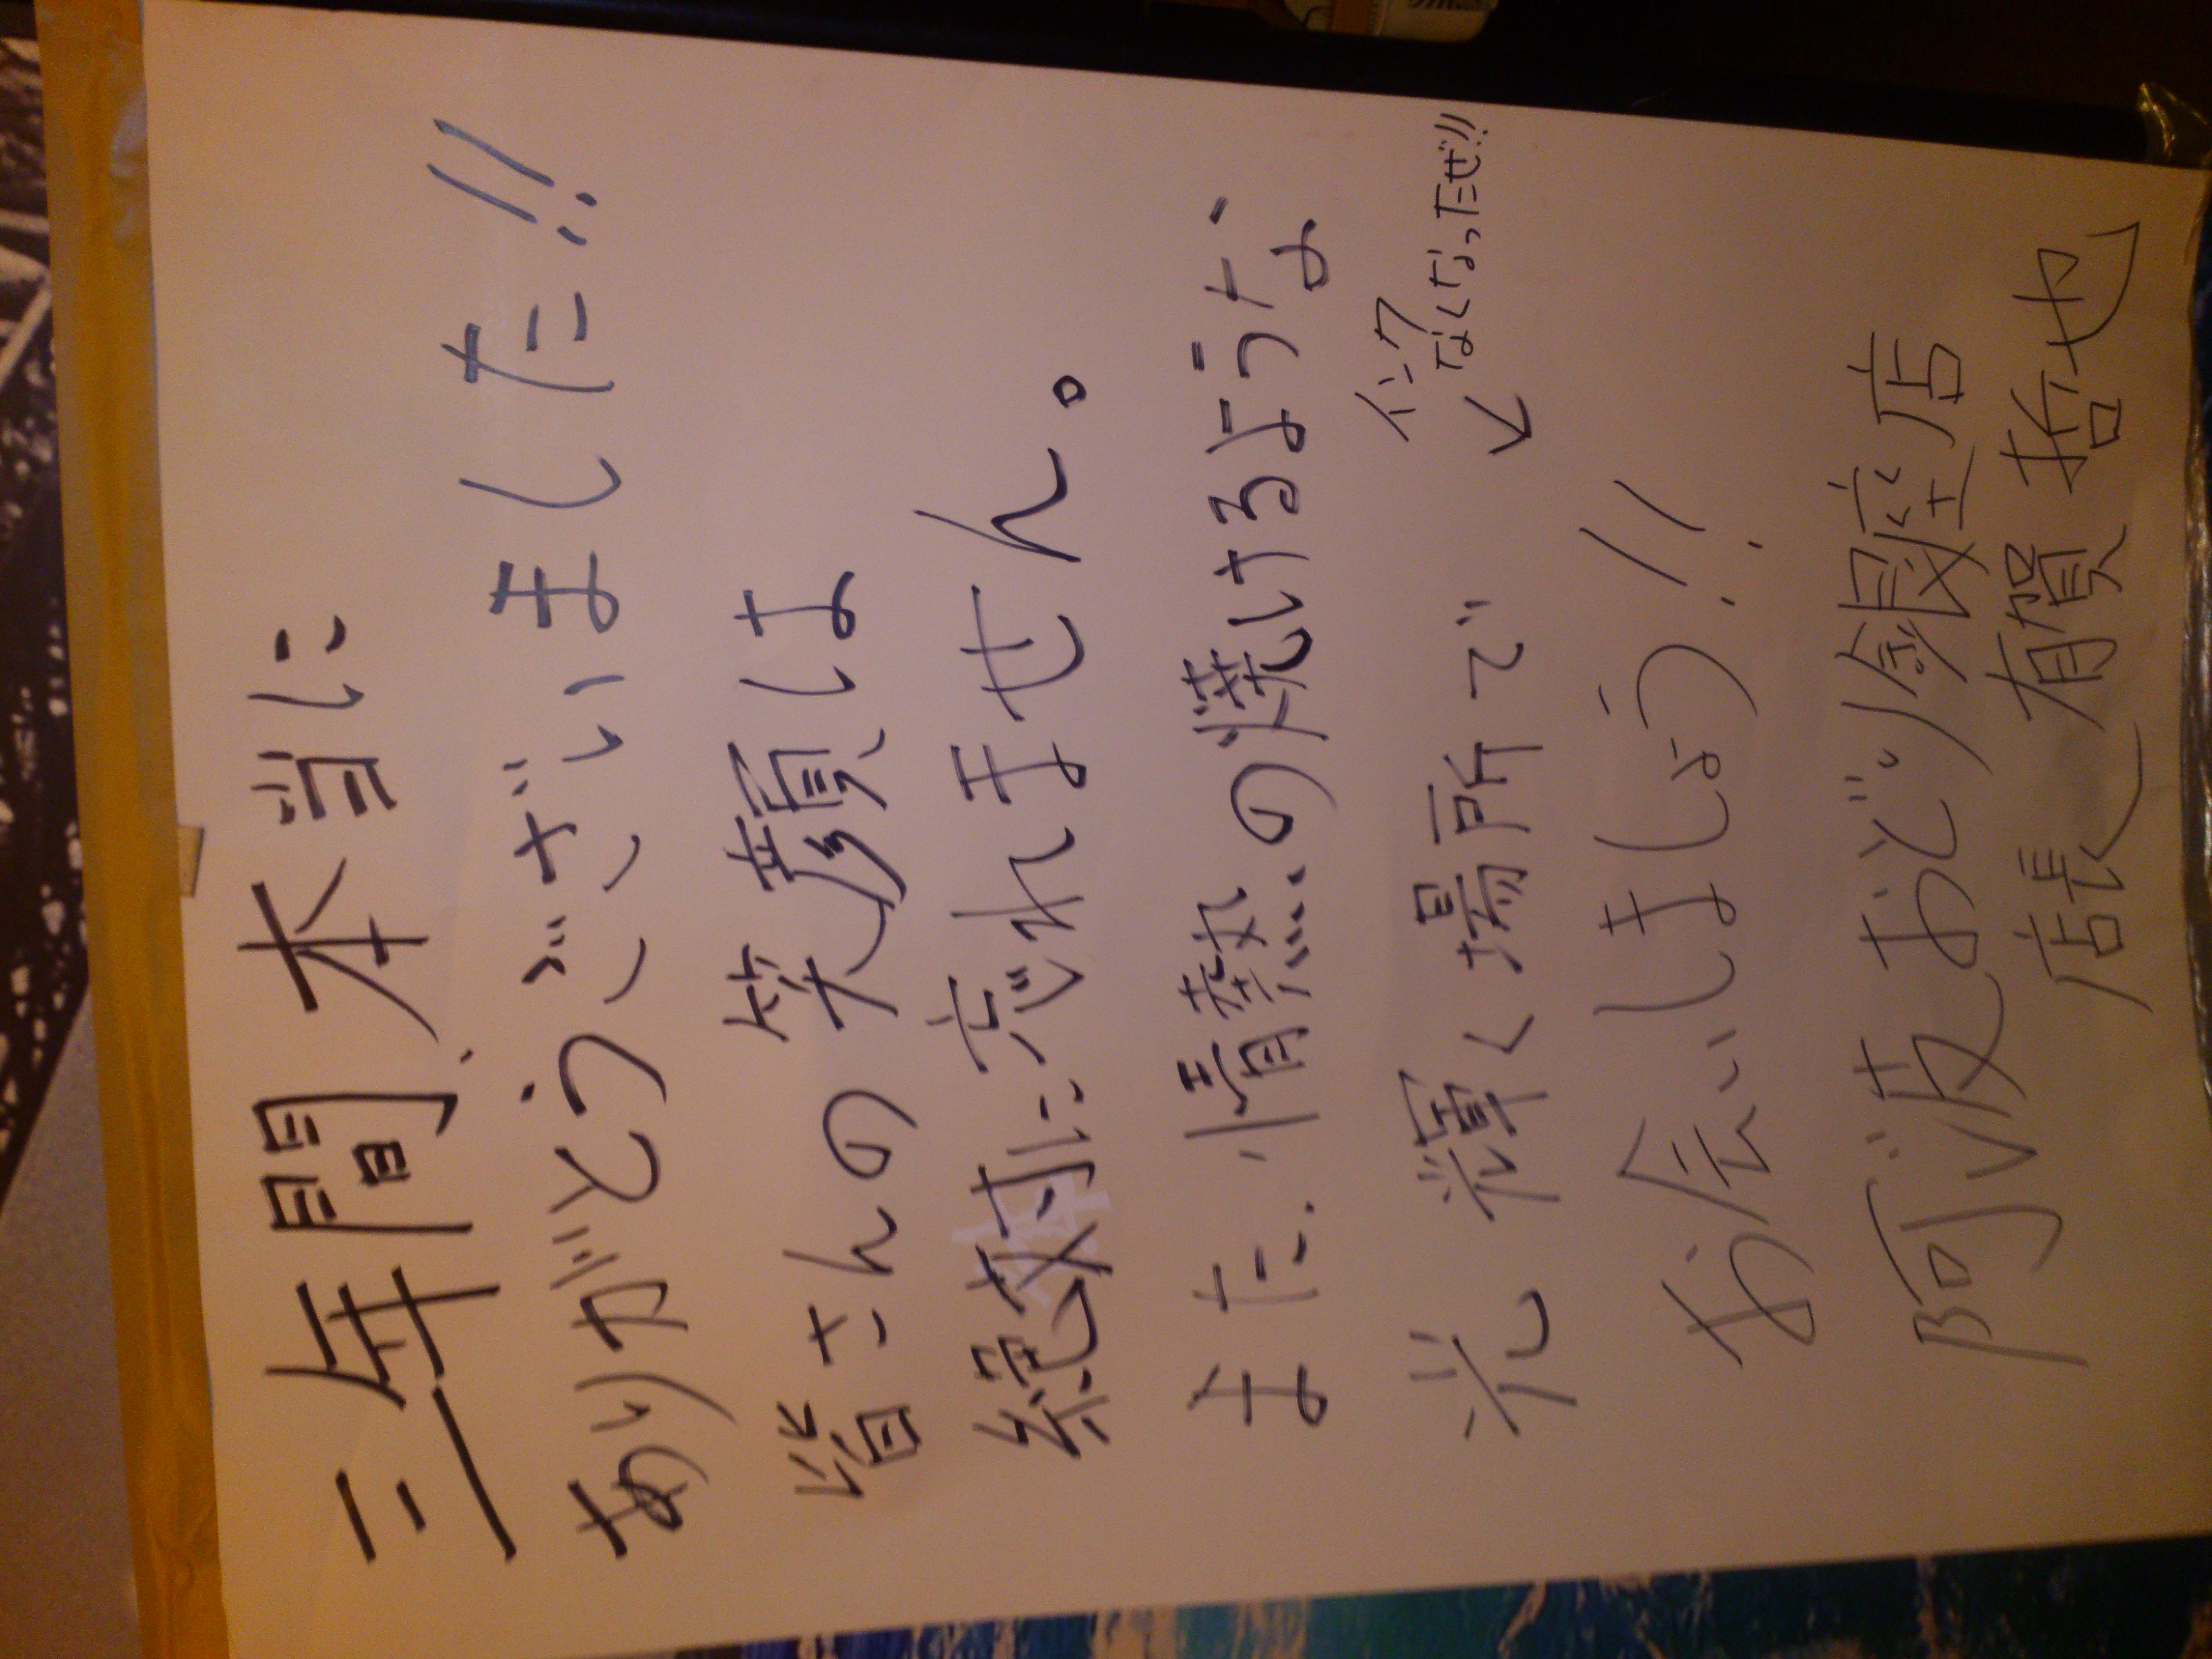 三年間、本当に
ありがとうございました!!
皆さんの笑顔は
絶対に忘れません。
また、情熱の焼けるような、
光輝く場所で
インク
なくなったぜ!!
↓
お会いしましょう!!
阿波おどり銀座店
店長 有賀哲也